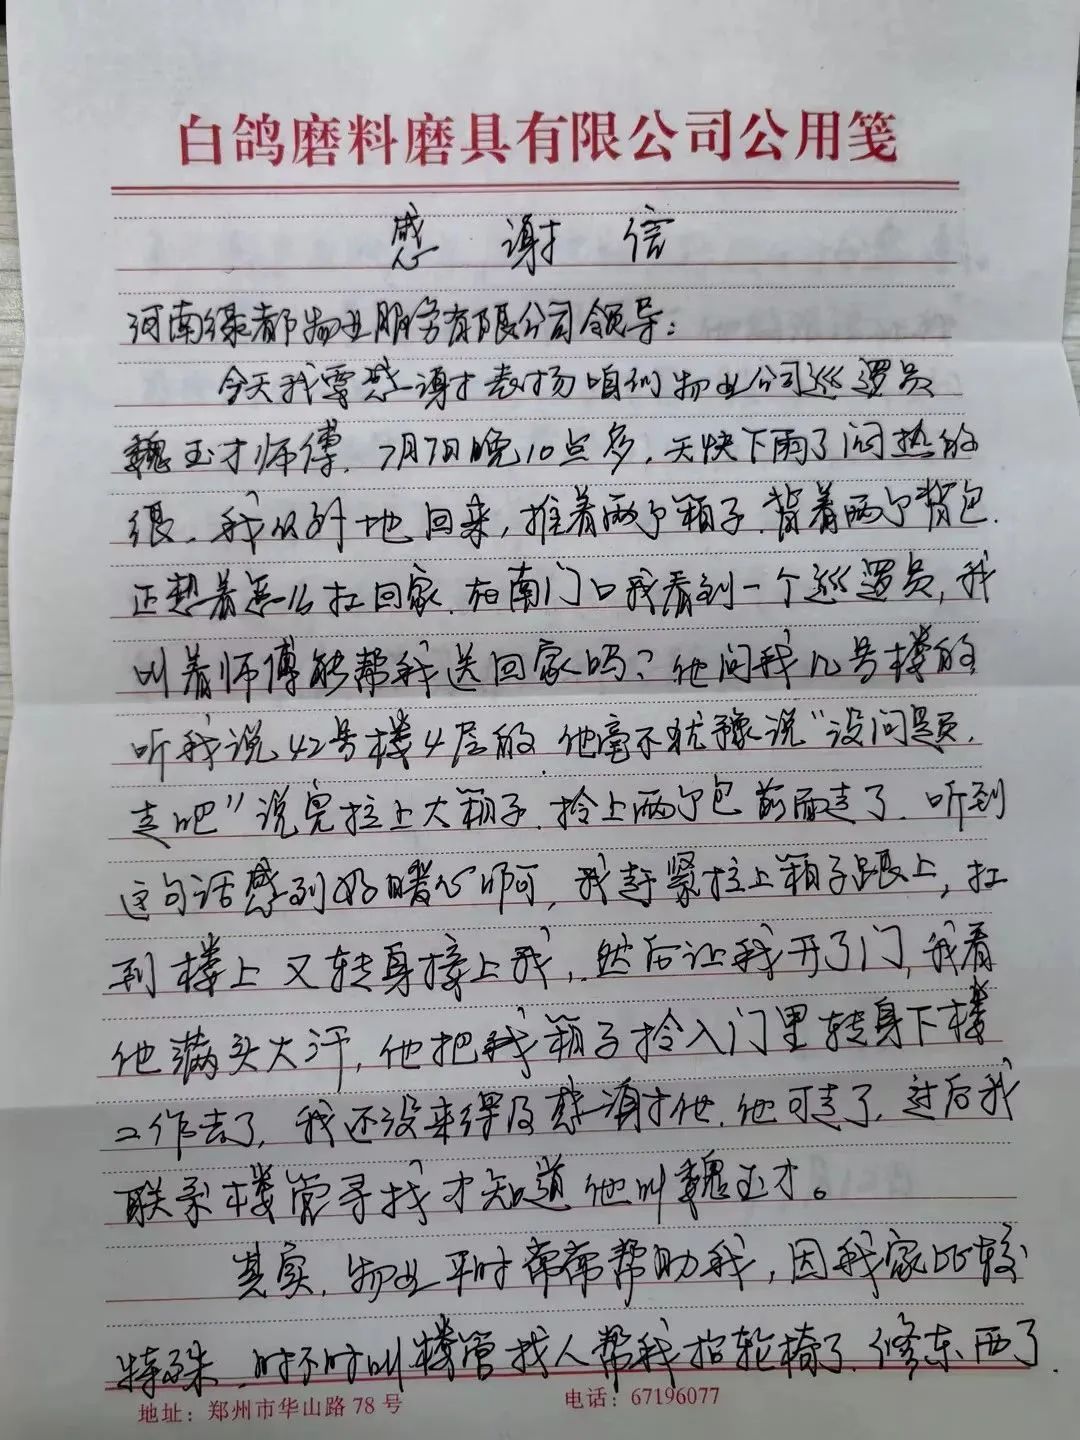 白鸽磨料磨具有限公司公用笺
感谢信
河南绿都物业服务有限公司领导：
今天我要感谢才表扬咱们物业公司巡逻员
魏玉才师傅. 7月7日晚10点多,天快下雨了闷热的
很.我从外地回来,推着两个箱子.背着两个背包.
正想着怎么扛回家.在南门口我看到一个巡逻员,我
叫着师傅能帮我送回家吗？他问我几号楼的
听我说42号楼4层的.他毫不犹豫说“没问题.
走吧”说完拉上大箱子.拎上两个包前面走了.听到
这句话感到好暖心啊,我赶紧拉上箱子跟上,扛
到楼上又转身接上我,然后让我开了门,我看
他满头大汗,他把我箱子拎入门里转身下楼
工作去了,我还没来得及感谢他.他可走了.过后我
联系楼管寻找才知道他叫魏玉才。
其实.物业平时常常帮助我,因我家比较
特殊.时不时叫楼管找人帮我抬轮椅了.修东西了.
地址：郑州市华山路78号
电话：67196077